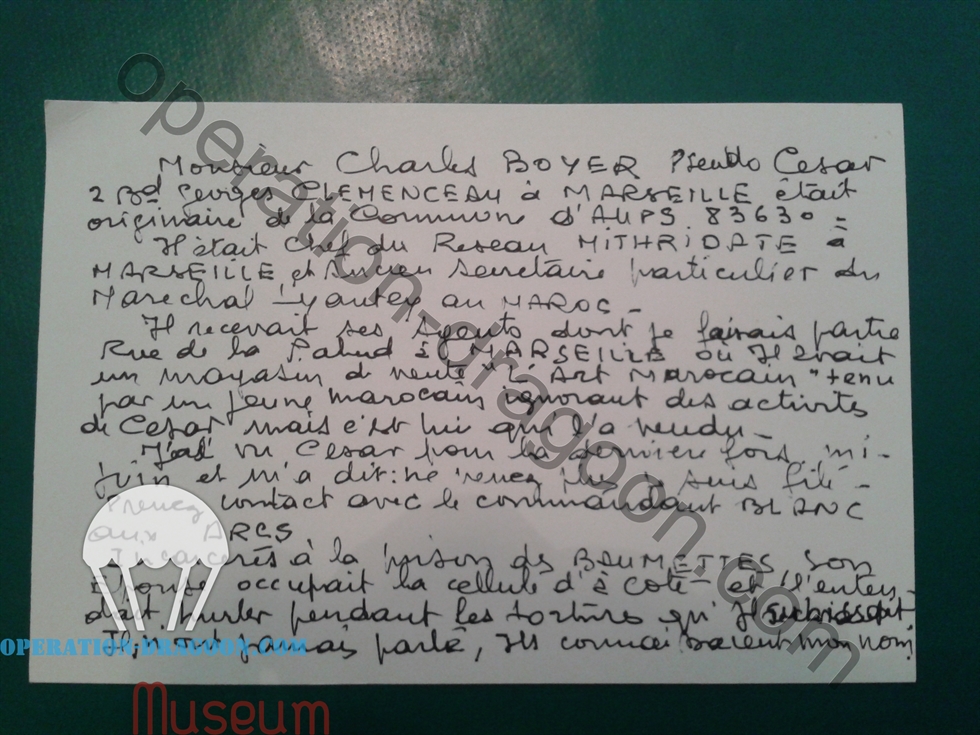 Monsieur Charles BOYER Pseudo Cesar
2 Bd Georges CLEMENCEAU à MARSEILLE était
originaire de la Commune d'AUPS 83630 -
Il était Chef du Reseau MITHRIDATE à
MARSEILLE et Ancien Secretaire particulier du
Marechal Lyautey au MAROC -
Il recevait ses Agents dont je faisais partie
Rue de la Palud à MARSEILLE où Il avait
un magasin de vente "L'Art Marocain" tenu
par un jeune marocain ignorant des activites
de Cesar mais c'est lui qui l'a vendu -
J'ai vu Cesar pour la derniere fois mi-
juin et m'a dit: ne venez plus je suis filé -
Prenez contact avec le commandant BLANC
aux ARCS
Incarcerés à la prison des BAUMETTES son
Epouse occupait la cellule d'à coté et l'enten-
dait hurler pendant les torture qu'Il subissait
Ils n'ont jamais parlé, Ils connaissaient mon nom
operation-dragoon.com
OPERATION-DRAGOON.COM
Museum